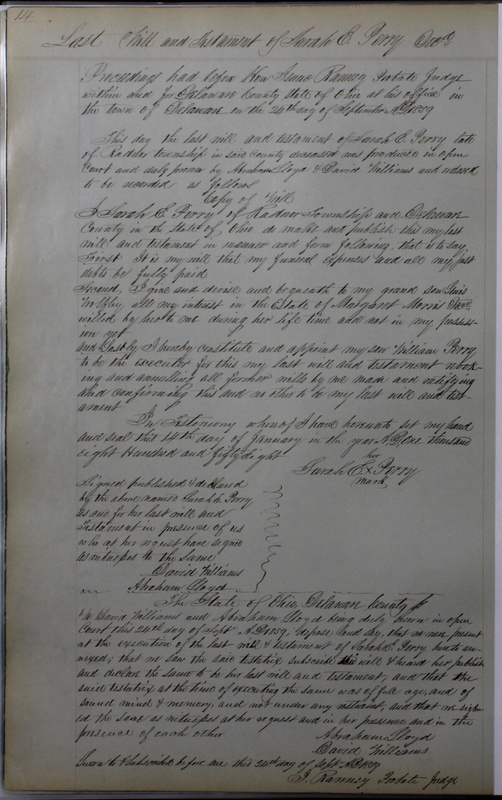 14
Last Will and Testament of Sarah E. Perry Decd
Proceedings had before Hon Isaac Ranney Probate Judge
within and for Delaware County State of Ohio at his office in
the town of Delaware on the 24th day of September A.D. 1859
This day the last will and testament of Sarah E. Perry late
of Radnor township in said County deceased was produced in open
Court and duly proven by Abraham Lloyd & David Williams and ordered
to be recorded as follows
Copy of Will
I Sarah E Perry of Radnor Township and Delaware
County in the State of Ohio do make and publish this my last
will and testament in manner and form following that is to say,
First It is my will that my funeral expenses and all my just
debts be fully paid
Second, I give and devise and bequeath to my grand son
all my interest in the Estate of Margaret Morris Decd
willed by her to me during her life time and not in my possess-
ion yet
and Lastly I hereby constitute and appoint my son William Perry
to be the executor for this my last will and testament revok-
ing and annulling all former wills by me made and ratifying
and confirming this and no other to be my last will and test-
ament
In Testimony whereof I have hereunto set my hand
and seal this 14th day of January in the year A.D. One thousand
eight Hundred and fifty eight
her
Sarah E X Perry
mark
Signed published & declared
by the above named Sarah E. Perry
as and for her last will and
Testament in presence of us
who at her request have signed
as witnesses to the same
David Williams
Abraham Lloyd
The State of Ohio Delaware County ss
We David Williams and Abraham Lloyd being duly sworn in open
Court this 24th day of Sept A.D. 1859, depose and say, that we were present
at the execution of the last will & testament of Sarah E Perry hereto an-
nexed; that we saw the said testatrix subscribe said will & heard her publish
and declare the same to be her last will and testament, and that the
said testatrix at the time of executing the same was of full age, and of
sound mind & memory and not under any restraint, and that we sign-
ed the same as witnesses at her request and in her presence and in the
presence of each other
Abraham Lloyd
David Williams
Sworn to & subscribed before me this 24th day of Sept. A.D. 1859
I. Ranney Probate Judge